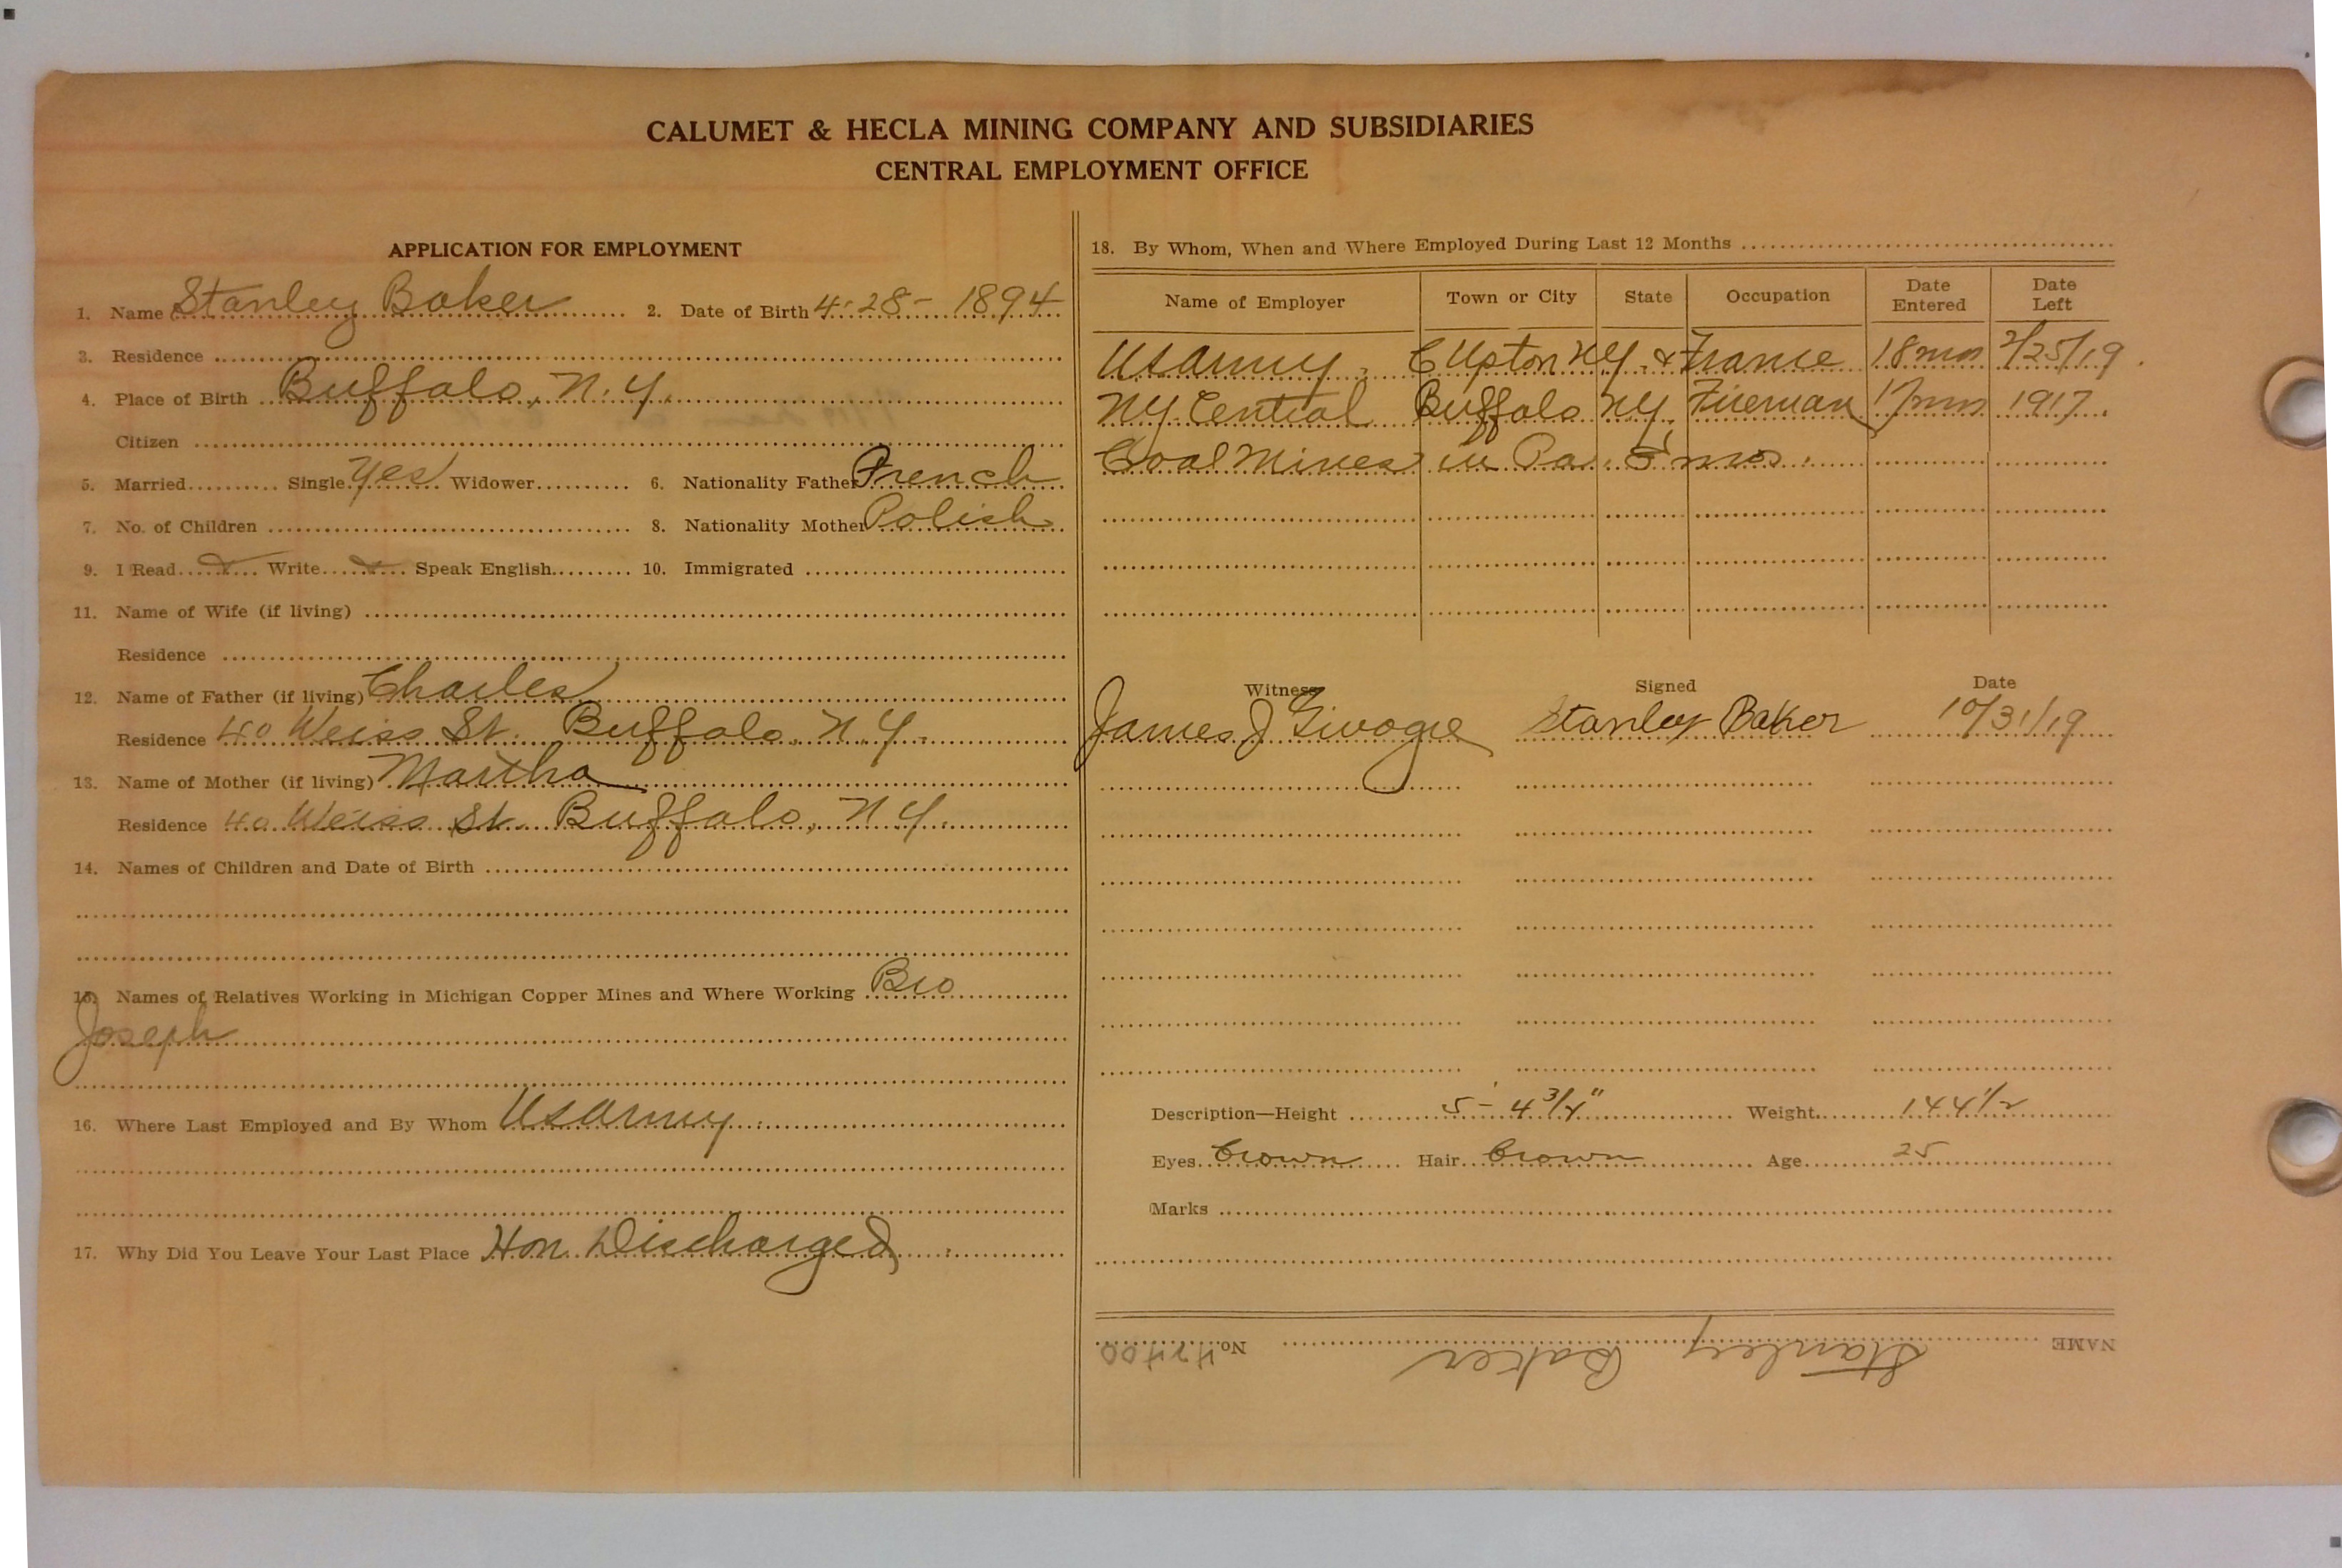 CALUMET & HECLA MINING COMPANY AND SUBSIDIARIES
CENTRAL EMPLOYMENT OFFICE
APPLICATION FOR EMPLOYMENT
1. Name Stanley Baker 2. Date of Birth 4-28-1894
3. Residence
4. Place of Birth Buffalo, N.Y.
Citizen
5. Married Single Yes Widower 6. Nationality Father French
7. No. of Children 8. Nationality Mother Polish
9. I Read Write Speak English 10. Immigrated
11. Name of Wife (if living)
Residence
12. Name of Father (if living) Charles
Residence 40 Weiss St. Buffalo, N.Y.
13. Name of Mother (if living) Martha
Residence 40 Weiss St. Buffalo, N.Y.
14. Names of Children and Date of Birth
15. Names of Relatives Working in Michigan Copper Mines and Where Working Bro
Joseph
16. Where Last Employed and By Whom US Army
17. Why Did You Leave Your Last Place Hon Discharged
18. By Whom, When and Where Employed During Last 12 Months
Name of Employer Town or City State Occupation Date Entered Date Left
US Army C Upton NY & France 18 mos 2/25/19
NY Central Buffalo NY Fireman 17 mos 1917
Coal Mines in Pa. mos.
Witness Signed Date
James J Stanley Baker 10/31/19
Description—Height 5'-4 3/4" Weight 144 1/2
Eyes brown Hair brown Age 25
Marks
NAME Stanley Baker No.